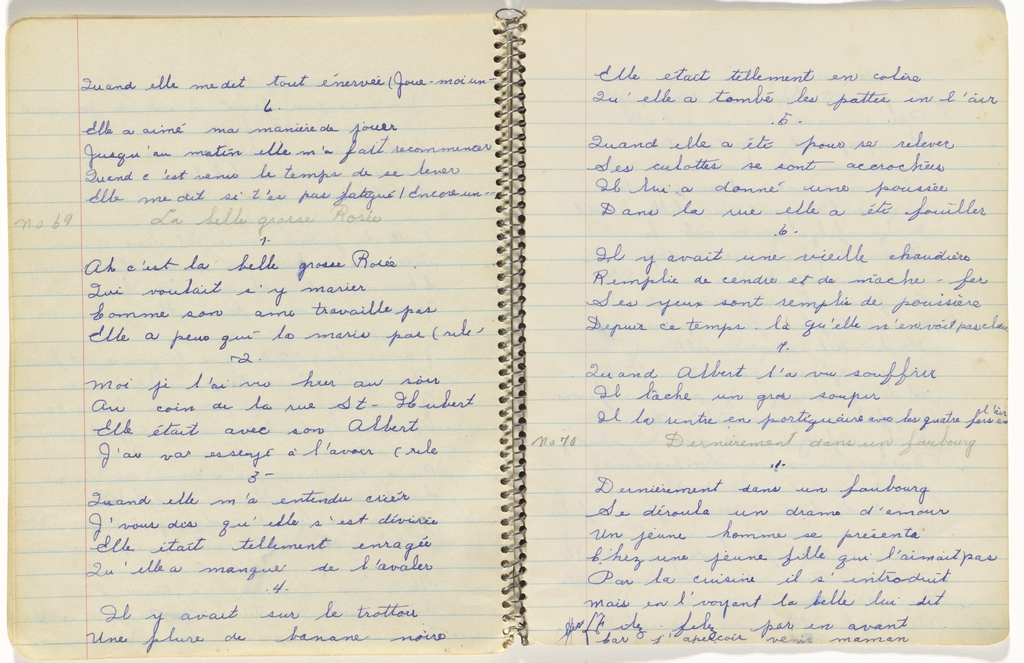 Quand elle me dit tout énervée (Joue-moi-un-
6.
Elle a aimé ma manière de jouer
Jusqu'au matin elle m'a fait recommencer
Quand c'est venu le temps de se lever
Elle me dit si t'es pas fatigué / Encore un-
no 69 La belle grosse Rosée
1-
Ah c'est la belle grosse Rosée
Qui voulait s'y marier
Comme son ami travaille pas
Elle a peur qu'i la marie pas (rile,
-2.
Moi je l'ai vu hier au soir
Au coin de la rue St-Hubert
Elle était avec son Albert
J'ai va essayé à l'avoir (rile
3-
Quand elle m'a entendu crier
J'vous dis qu'elle s'est dévirée
Elle était tellement enragée
Qu'elle a manqué de l'avaler
.4.
Il y avait sur le trottoir
Une plure de banane noire
Elle était tellement en colère
Qu'elle a tombé les pattes en l'air
.5.
Quand elle a été pour se relever
Ses culottes se sont accrochées
Il lui a donné une poussée
Dans la rue elle a été fouiller
.6.
Il y avait une vieille chaudière
Remplie de cendre et de mâche-fer
Ses yeux sont remplis de poussière
Depuis ce temps-là qu'elle n'en voit pas clair
7.
Quand Albert l'a vu souffrir
Il lâche un gros soupir
Il la rentre en portiguaire avec les quatre fers en l'air
No 70 Dernièrement dans un faubourg
.1.
Dernièrement dans un faubourg
Se déroula un drame d'amour
Un jeune homme se présenta
Chez une jeune fille qui l'aimait pas
Par la cuisine il s'introduit
Mais en l'voyant la belle lui dit
filez par en avant
Car j'aperçois venir maman